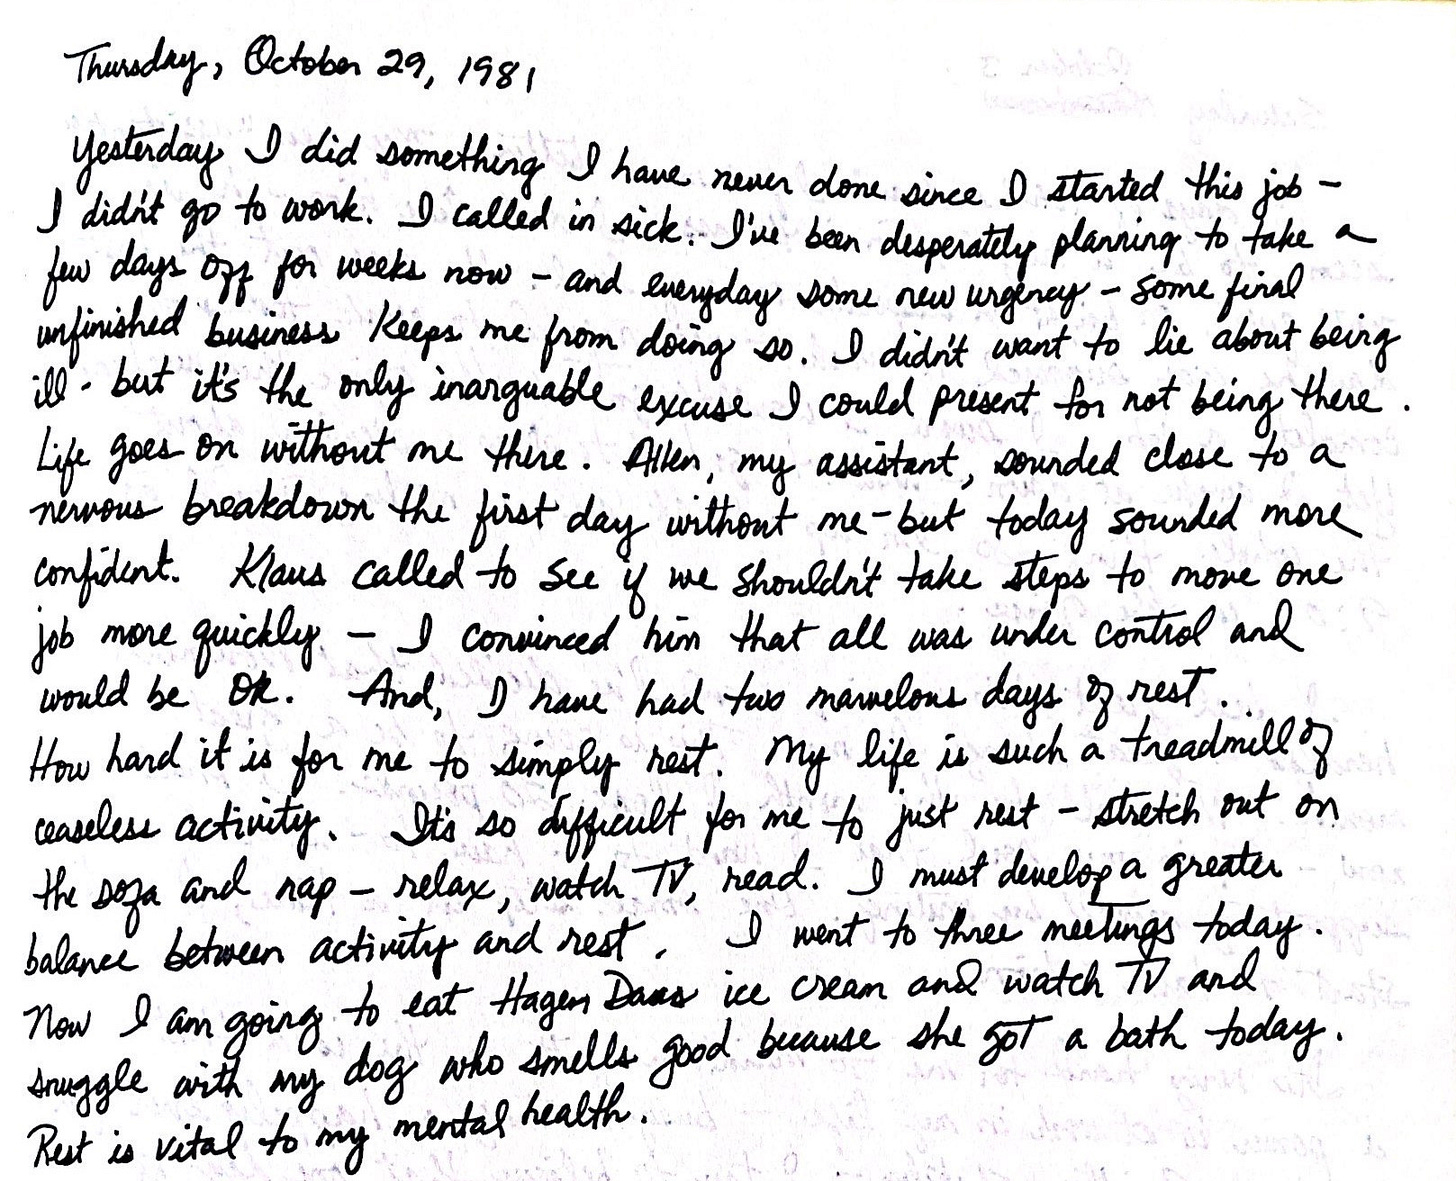 Thursday, October 29, 1981
Yesterday I did something I have never done since I started this job –
I didn't go to work. I called in sick. I've been desperately planning to take a
few days off for weeks now – and everyday some new urgency – some final
unfinished business keeps me from doing so. I didn't want to lie about being
ill - but it's the only inarguable excuse I could present for not being there.
Life goes on without me there. Allen, my assistant, sounded close to a
nervous breakdown the first day without me – but today sounded more
confident. Klaus called to see if we shouldn't take steps to move one
job more quickly – I convinced him that all was under control and
would be OK. And, I have had two marvelous days of rest.
How hard it is for me to simply rest. My life is such a treadmill of
ceaseless activity. It's so difficult for me to just rest – stretch out on
the sofa and nap – relax, watch TV, read. I must develop a greater
balance between activity and rest. I went to three meetings today.
Now I am going to eat Hagen Daas ice cream and watch TV and
snuggle with my dog who smells good because she got a bath today.
Rest is vital to my mental health.